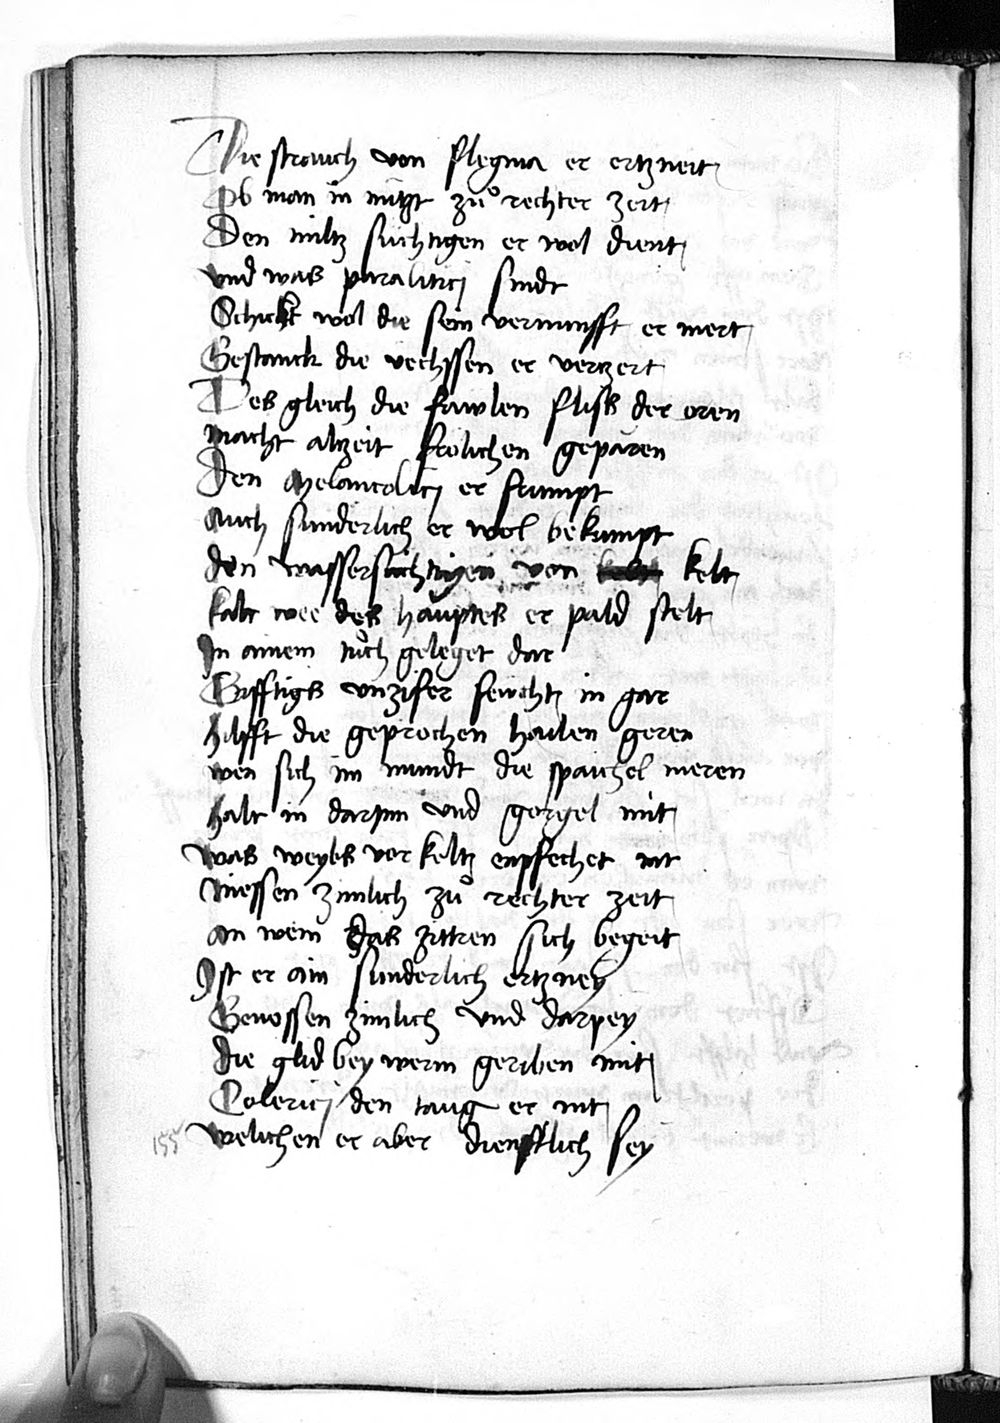 Die strauch von flegma er ertzneit
Ob man in nützt zů rechter zeit
Den miltz süchtigen er wol dient
vnd was paralitici sindt
Schickt wol die sein vernunfft er mert
Gestanck die vechssen er verzert
Des gleich die fawlen fliss der oren
macht altzeit frolichen geparen
Den Melancolici er frumpt
Auch sunderlich er wol bekumpt
den wassersüchtigen von kelt
kalt wee des hauptes er pald stelt
In ainem tůch geleget dar
Gifftigs vnzifer feucht in gar
hilfft die geprochen haulen geren
wen sich im mundt die spaichel meren
halt in darynn vnd gorgel mit
was weybs vor kelt enpfechet nit
Niessen zimlich zů rechter zeit
an wem das zittren sich begeit
Ist er ain sunderlich ertzney
Genossen zimlich vnd darpey
die glid bey werm geriben mit
Colerici den taug er nit
155 welichen er aber dienstlich sey